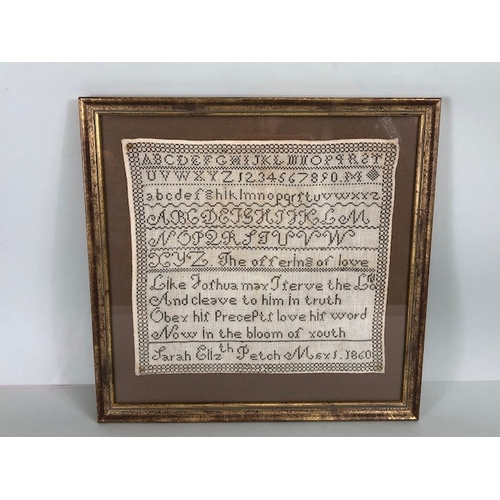 ABCDEFGHIJKLMNOPQRST
UVWXYZ1234567890.M
abcdefghiklmnopqrstuvwxyz
ABCDEFGHIJKLM
NOPQRSTUVW
XYZ. The offering of love
Like Joſhua may I ſerve the Lo
And cleave to him in truth
Obey hiſ Preceptſ love hiſ word
Now in the bloom of youth
Sarah Elizth Petch May 1. 1860